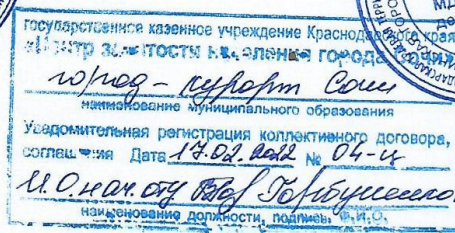 государственное казенное учреждение Краснодарского края
«Центр занятости населения города Сочи»
город - курорт Сочи
наименование муниципального образования
Уведомительная регистрация коллективного договора,
соглашения Дата 17.02.2022 № 04-ц
И.О нач.оту Горбушенко
наименование должности, подпись, Ф.И.О.